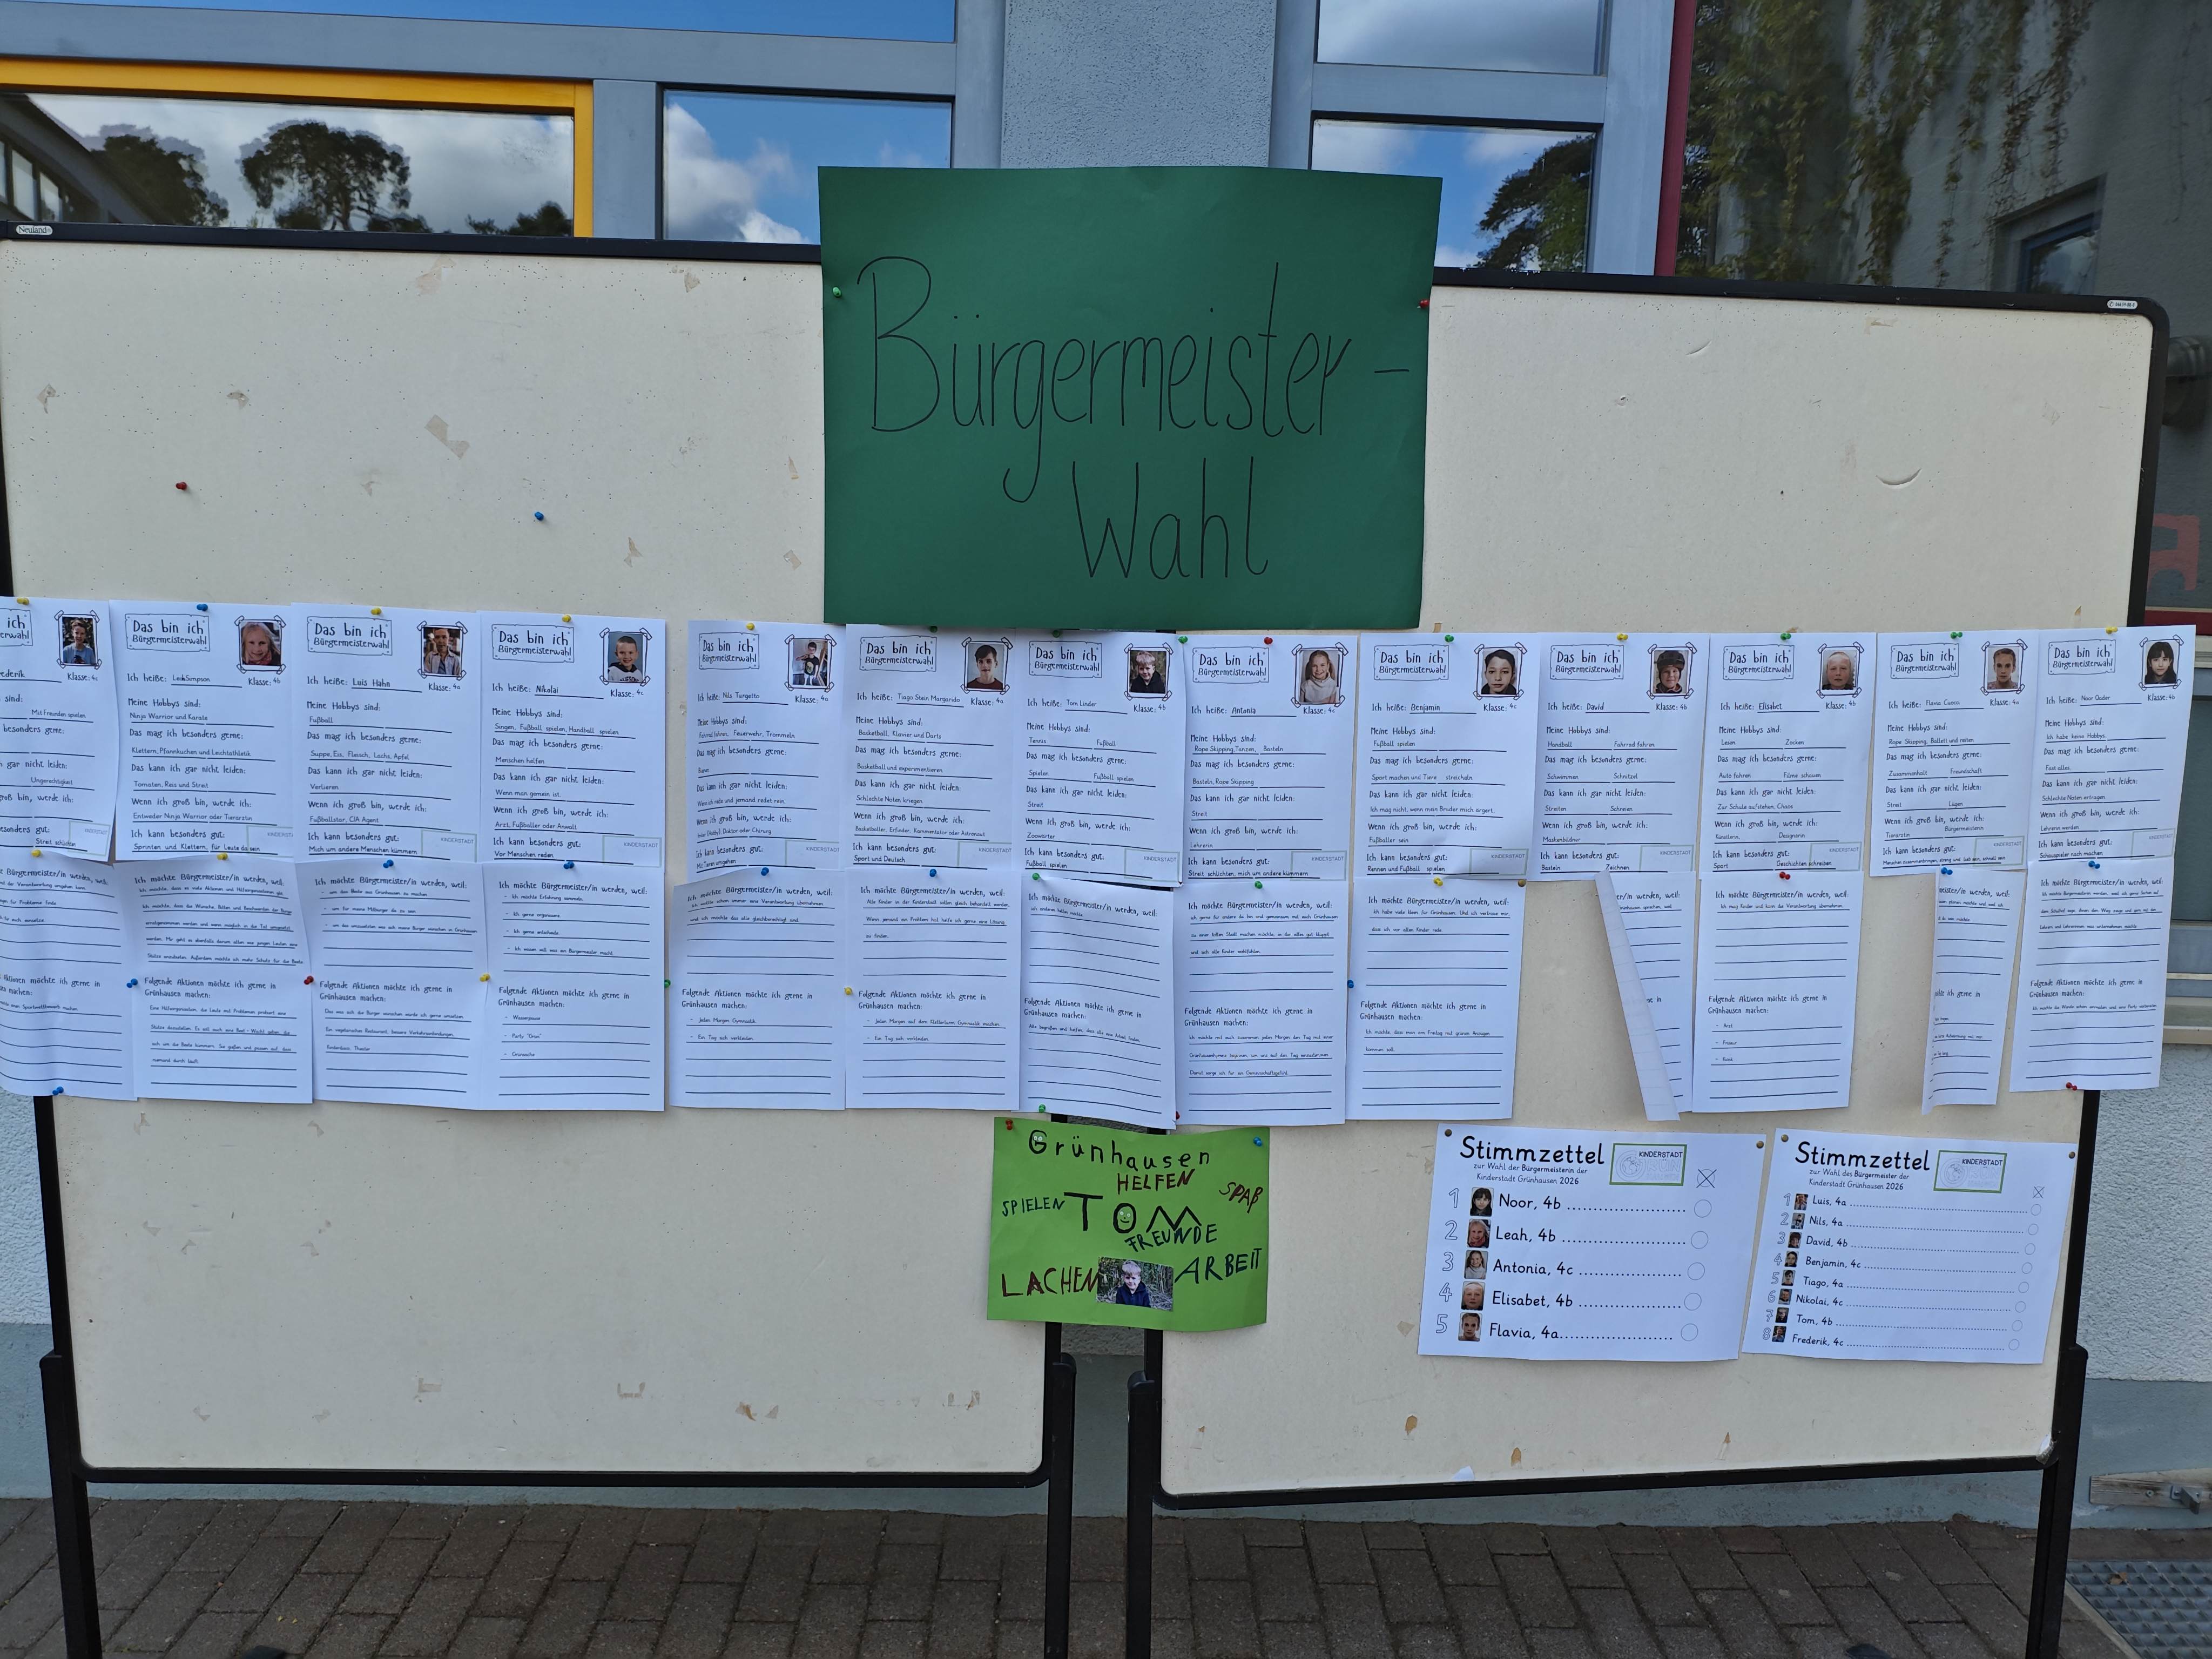 Neuland
Bürgermeister-
Wahl
ich
erwahl
ederik
Klasse: 4c
sind:
Mit Freunden spielen
gar nicht leiden:
Ungerechtigkeit
groß bin, werde ich:
besonders gut:
Streit schlichten
Das bin ich
Bürgermeisterwahl
Ich heiße: Leah Simpson
Klasse: 4b
Meine Hobbys sind:
Ninja Warrior und Karate
Das mag ich besonders gerne:
Klettern, Pfannkuchen und Leichtathletik
Das kann ich gar nicht leiden:
Tomaten, Reis und Streit
Wenn ich groß bin, werde ich:
Entweder Ninja Warrior oder Tierärztin
Ich kann besonders gut:
Sprinten und Klettern, für Leute da sein
Das bin ich
Bürgermeisterwahl
Ich heiße: Luis Hahn
Klasse: 4a
Meine Hobbys sind:
Fußball
Das mag ich besonders gerne:
Suppe, Eis, Fleisch, Lachs, Apfel
Das kann ich gar nicht leiden:
Verlieren
Wenn ich groß bin, werde ich:
Fußballstar, CIA Agent
Ich kann besonders gut:
Mich um andere Menschen kümmern
KINDERSTADT
Das bin ich
Bürgermeisterwahl
Ich heiße: Nikolai
Klasse: 4c
Meine Hobbys sind:
Singen, Fußball spielen, Handball spielen
Das mag ich besonders gerne:
Menschen helfen
Das kann ich gar nicht leiden:
Wenn man gemein ist.
Wenn ich groß bin, werde ich:
Arzt, Fußballer oder Anwalt
Ich kann besonders gut:
Vor Menschen reden
KINDERSTADT
Das bin ich
Bürgermeisterwahl
Ich heiße: Nils Turgetto
Klasse: 4a
Meine Hobbys sind:
Fahrrad fahren, Feuerwehr, Trommeln
Das mag ich besonders gerne:
Das kann ich gar nicht leiden:
Wenn ich rede und jemand redet rein.
Wenn ich groß bin, werde ich:
Doktor oder Chirurg
Ich kann besonders gut:
Mit Tieren umgehen
KINDERSTADT
Das bin ich
Bürgermeisterwahl
Ich heiße: Tiago Stein Margarido
Klasse: 4a
Meine Hobbys sind:
Basketball, Klavier und Darts
Das mag ich besonders gerne:
Basketball und experimentieren
Das kann ich gar nicht leiden:
Schlechte Noten kriegen
Wenn ich groß bin, werde ich:
Basketballer, Erfinder, Kommentator oder Astronaut
Ich kann besonders gut:
Sport und Deutsch
KINDERSTADT
Das bin ich
Bürgermeisterwahl
Ich heiße: Tom Linder
Klasse: 4b
Meine Hobbys sind:
Tennis Fußball
Das mag ich besonders gerne:
Spielen Fußball spielen
Das kann ich gar nicht leiden:
Streit
Wenn ich groß bin, werde ich:
Zoowärter
Ich kann besonders gut:
Fußball spielen
KINDERSTADT
Das bin ich
Bürgermeisterwahl
Ich heiße: Antonia
Klasse: 4c
Meine Hobbys sind:
Rope Skipping, Tanzen, Basteln
Das mag ich besonders gerne:
Basteln, Rope Skipping
Das kann ich gar nicht leiden:
Streit
Wenn ich groß bin, werde ich:
Lehrerin
Ich kann besonders gut:
Streit schlichten, mich um andere kümmern
KINDERSTADT
Das bin ich
Bürgermeisterwahl
Ich heiße: Benjamin
Klasse: 4c
Meine Hobbys sind:
Fußball spielen
Das mag ich besonders gerne:
Sport machen und Tiere streicheln
Das kann ich gar nicht leiden:
Ich mag nicht, wenn mein Bruder mich ärgert.
Wenn ich groß bin, werde ich:
Fußballer sein
Ich kann besonders gut:
Rennen und Fußball spielen
KINDERSTADT
Das bin ich
Bürgermeisterwahl
Ich heiße: David
Klasse: 4b
Meine Hobbys sind:
Handball Fahrrad fahren
Das mag ich besonders gerne:
Schwimmen Schnitzel
Das kann ich gar nicht leiden:
Streiten Schreien
Wenn ich groß bin, werde ich:
Maskenbildner
Ich kann besonders gut:
Basteln Zeichnen
KINDERSTADT
Das bin ich
Bürgermeisterwahl
Ich heiße: Elisabet
Klasse: 4b
Meine Hobbys sind:
Lesen Zocken
Das mag ich besonders gerne:
Auto fahren Filme schauen
Das kann ich gar nicht leiden:
Zur Schule aufstehen, Chaos
Wenn ich groß bin, werde ich:
Künstlerin, Designerin
Ich kann besonders gut:
Sport Geschichten schreiben
KINDERSTADT
Das bin ich
Bürgermeisterwahl
Ich heiße: Flavia
Klasse: 4a
Meine Hobbys sind:
Rope Skipping, Ballett und reiten
Das mag ich besonders gerne:
Zusammenhalt Freundschaft
Das kann ich gar nicht leiden:
Streit Lügen
Wenn ich groß bin, werde ich:
Tierärztin Bürgermeisterin
Ich kann besonders gut:
KINDERSTADT
Das bin ich
Bürgermeisterwahl
Ich heiße: Noor Qader
Klasse: 4b
Meine Hobbys sind:
Ich habe keine Hobbys.
Das mag ich besonders gerne:
Fast alles
Das kann ich gar nicht leiden:
Schlechte Noten ertragen
Wenn ich groß bin, werde ich:
Lehrerin werden
Ich kann besonders gut:
Schauspieler nach machen
KINDERSTADT
Bürgermeister/in werden, weil:
Aktionen möchte ich gerne in
machen:
Ich möchte Bürgermeister/in werden, weil:
Folgende Aktionen möchte ich gerne in
Grünhausen machen:
Ich möchte Bürgermeister/in werden, weil:
- um das Beste aus Grünhausen zu machen
- um für meine Mitbürger da zu sein
- um das umzusetzen was sich meine Bürger wünschen in Grünhausen
Folgende Aktionen möchte ich gerne in
Grünhausen machen:
Das was sich die Bürger wünschen würde ich gerne umsetzen.
Ein vegetarisches Restaurant, bessere Verkehrsanbindungen,
Kinderdisco, Theater
Ich möchte Bürgermeister/in werden, weil:
- Ich möchte Erfahrung sammeln.
- Ich gerne organisiere
- Ich gerne entscheide
- Ich wissen will, was ein Bürgermeister macht.
Folgende Aktionen möchte ich gerne in
Grünhausen machen:
- Wasserpause
- Party "Grün"
- Grünwoche
Ich möchte Bürgermeister/in werden, weil:
Ich wollte schon immer eine Verantwortung übernehmen
und ich möchte das alle gleichberechtigt sind.
Folgende Aktionen möchte ich gerne in
Grünhausen machen:
- Jeden Morgen Gymnastik
- Ein Tag sich verkleiden
Ich möchte Bürgermeister/in werden, weil:
Alle Kinder in der Kinderstadt sollen gleich behandelt werden.
Wenn jemand ein Problem hat helfe ich gerne eine Lösung
zu finden.
Folgende Aktionen möchte ich gerne in
Grünhausen machen:
- Jeden Morgen auf dem Kletterturm Gymnastik machen
- Ein Tag sich verkleiden
Ich möchte Bürgermeister/in werden, weil:
Ich anderen helfen möchte
Folgende Aktionen möchte ich gerne in
Grünhausen machen:
Alle begrüßen und helfen, dass alle eine Arbeit finden
Ich möchte Bürgermeister/in werden, weil:
ich gerne für andere da bin und gemeinsam mit euch Grünhausen
zu einer tollen Stadt machen möchte, in der alles gut klappt
und sich alle Kinder wohlfühlen.
Folgende Aktionen möchte ich gerne in
Grünhausen machen:
Ich möchte mit euch zusammen jeden Morgen den Tag mit einer
Grünhausenhymne beginnen, um uns auf den Tag einzustimmen.
Damit sorge ich für ein Gemeinschaftsgefühl.
Ich möchte Bürgermeister/in werden, weil:
Ich habe viele Ideen für Grünhausen. Und ich vertraue mir,
dass ich vor allen Kinder rede.
Folgende Aktionen möchte ich gerne in
Grünhausen machen:
Ich möchte, dass man am Freitag mit grünen Anzügen
kommen soll.
Ich möchte Bürgermeister/in werden, weil:
Ich mag Kinder und kann die Verantwortung übernehmen.
Folgende Aktionen möchte ich gerne in
Grünhausen machen:
- Arzt
- Friseur
- Bank
werden, weil:
gerne in
Ich möchte Bürgermeister/in werden, weil:
Folgende Aktionen möchte ich gerne in
Grünhausen machen:
Grünhausen
HELFEN
SPIELEN
TOM
SPAß
FREUNDE
LACHEN
ARBEIT
Stimmzettel
zur Wahl der Bürgermeisterin der
Kinderstadt Grünhausen 2026
KINDERSTADT
1 Noor, 4b
2 Leah, 4b
3 Antonia, 4c
4 Elisabet, 4b
5 Flavia, 4a
Stimmzettel
zur Wahl des Bürgermeister der
Kinderstadt Grünhausen 2026
KINDERSTADT
1 Luis, 4a
2 Nils, 4a
3 David, 4b
4 Benjamin, 4c
5 Tiago, 4a
6 Nikolai, 4c
7 Tom, 4b
8 Frederik, 4c